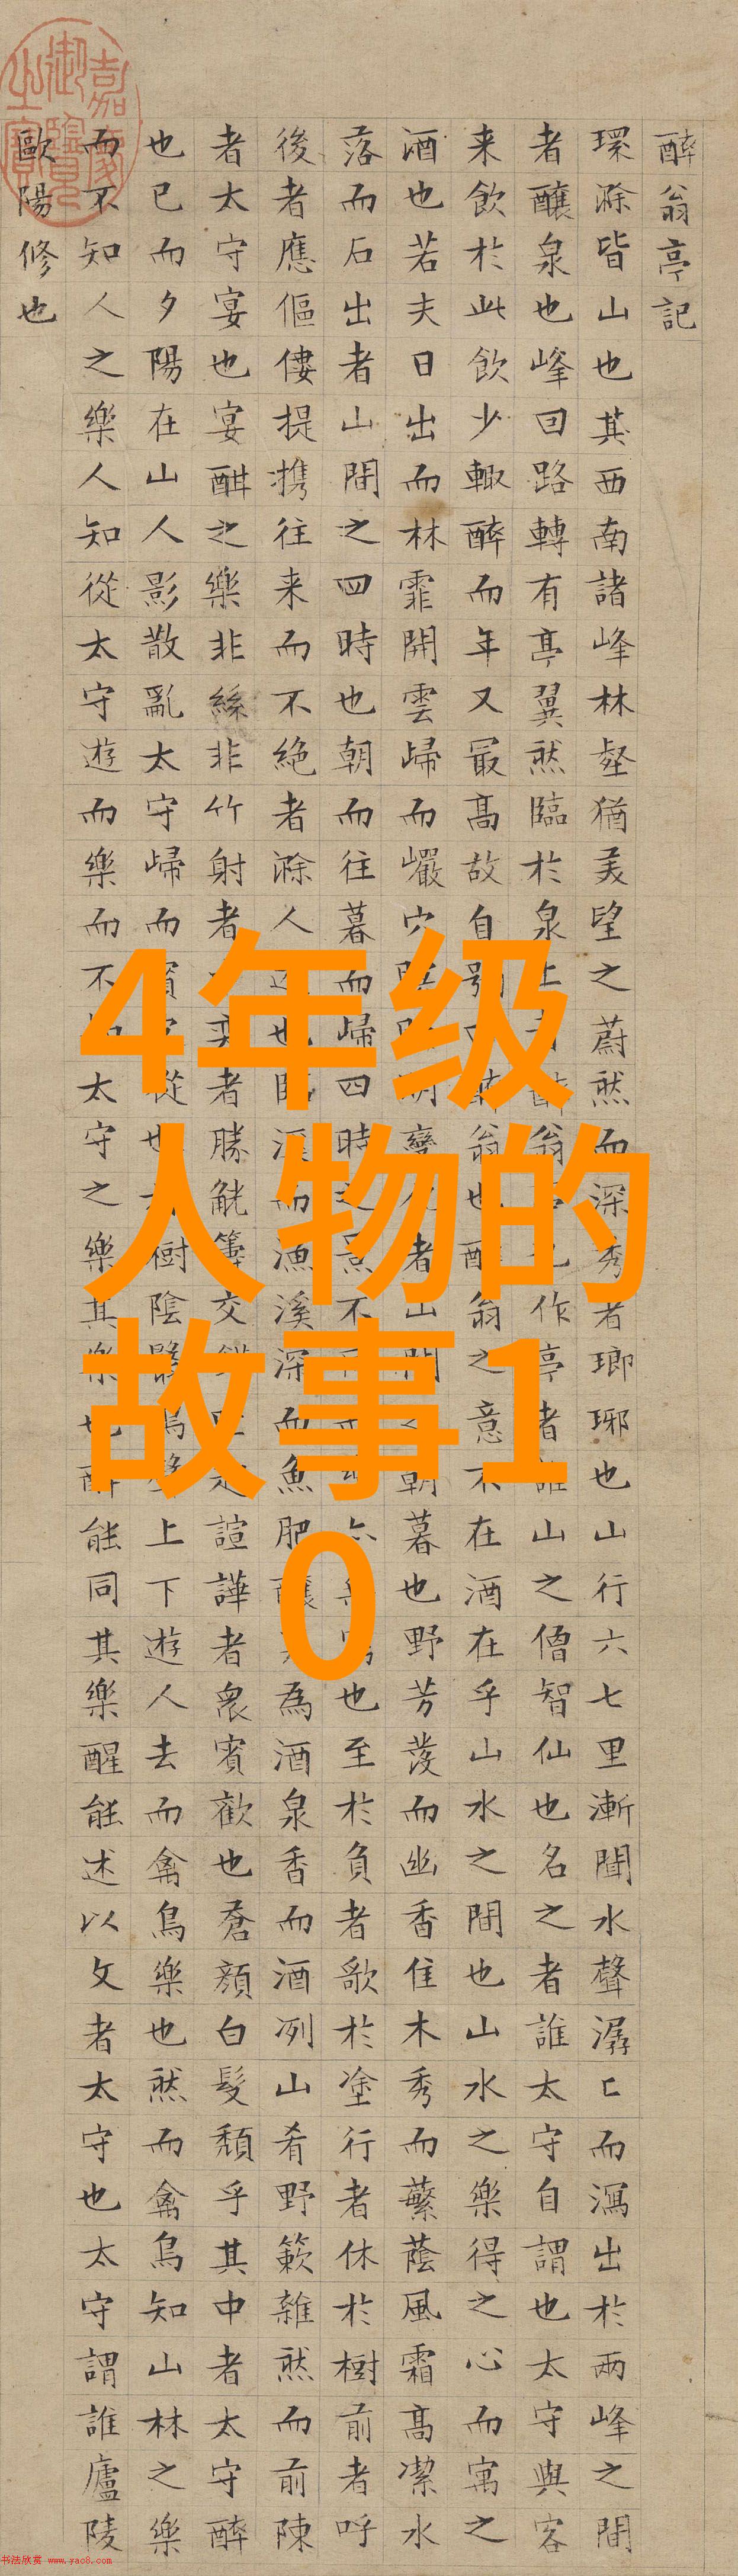 醉翁亭記
環滁皆山也其西南諸峰林壑猶羙望之蔚然而深秀者瑯琊也山行六七里漸聞水聲潺〻而瀉出於兩峰之間
者釀泉也峰回路轉有亭翼然臨於泉上醉翁作亭者誰山之僧智仙也名之者誰太守自謂也太守與客
来飲於此飲少輒醉而年又最高故自號醉翁也醉翁之意不在酒在乎山水之間也山水之樂得之心而寓之
酒也若夫日出而林霏開雲歸而巖穴明變者山間朝暮也野芳發而幽香佳木秀而蘩蔭風霜高潔水
落而石出者山間之四時也朝而往暮而歸四時之景不亦也至於負者歌於塗行者休於樹前者呼
後者應傴僂提攜往来而不絕者滁人也臨溪而漁溪深而魚肥釀為酒泉香而酒冽山肴野簌雜然而前陳
者太守宴也宴酣之樂非絲非竹射者奕者勝觥籌交諠譁者衆賓歡也蒼顏白髮頹乎其中者太守醉
也已而夕陽在山人影散亂太守歸而賓從也樹陰翳鳴聲上下遊人去而禽鳥樂也然而禽鳥知山林之樂
而不知人之樂人知從太守遊而樂而不太守之樂其樂也醉能同其樂醒能述以文者太守也太守謂誰廬陵
歐陽修也
4年级
人物的
故事1
0
书法欣赏 www.yac8.com